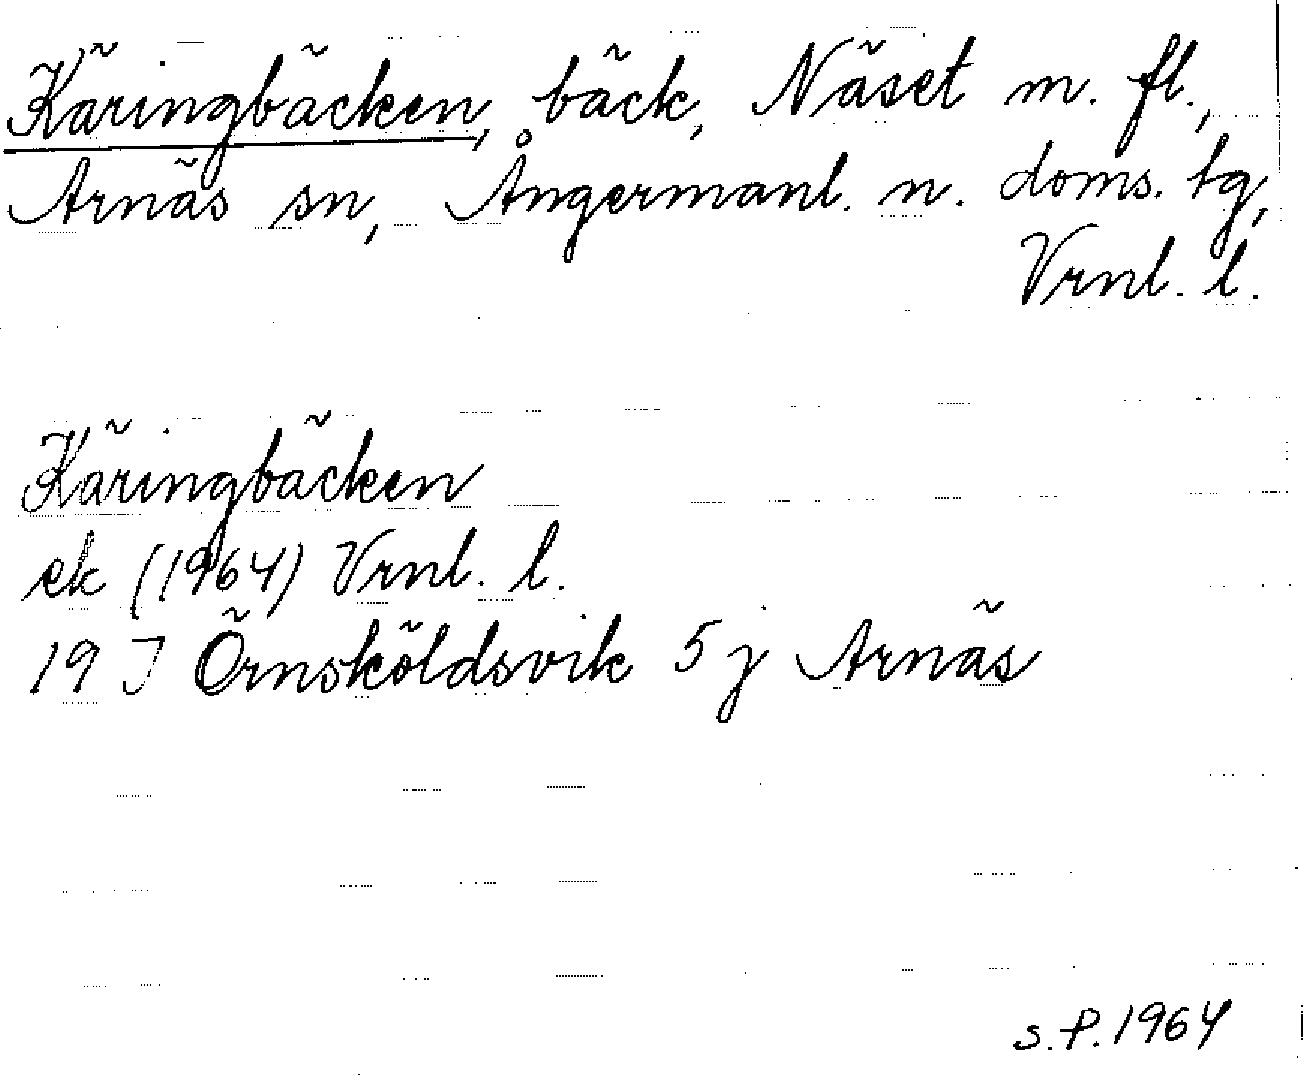 Käringbäcken, bäck, Näset m. fl.,
Arnäs sn, Ångermanl. n. doms. tg,
Vrnl. l.
Käringbäcken
ek (1964) Vrnl. l.
19 J Örnsköldsvik 5 j Arnäs
S.P. 1964